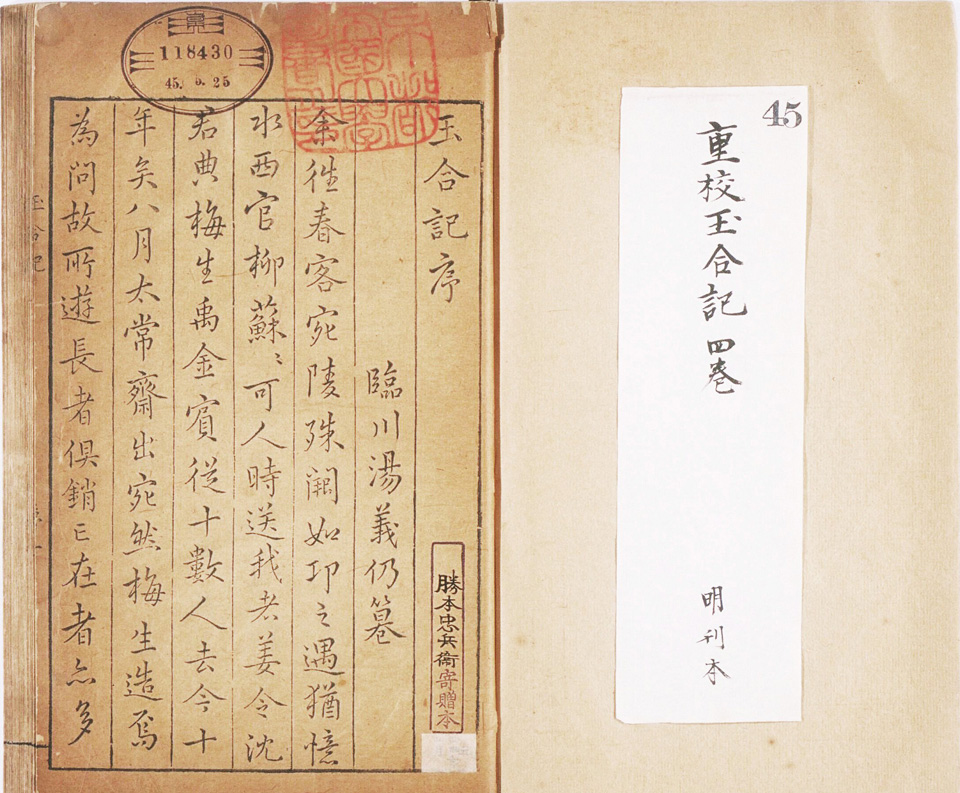 45
重校玉合記 四卷
明刊本
118430
玉合記序
臨川湯義仍篹
余徃春客宛陵殊闕如卭之遇猶憶
水西官柳蘇〻可人時送我者姜令沈
君典梅生禹金賓從十數人去今十
年矣八月太常齋出宛然梅生造焉
為問故所遊長者俱銷亡在者亦多
勝本忠兵衞寄贈本
玉合記